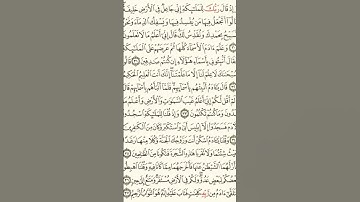 إِذْ قَالَ رَبُّكَ لِلْمَلَٰٓئِكَةِ إِنِّى جَاعِلٌ فِى ٱلْأَرْضِ خَلِيفَةً
قَالُوٓا۟ أَتَجْعَلُ فِيهَا مَن يُفْسِدُ فِيهَا وَيَسْفِكُ ٱلدِّمَآءَ وَنَحْنُ
نُسَبِّحُ بِحَمْدِكَ وَنُقَدِّسُ لَكَ قَالَ إِنِّىٓ أَعْلَمُ مَا لَا تَعْلَمُونَ
وَعَلَّمَ ءَادَمَ ٱلْأَسْمَآءَ كُلَّهَا ثُمَّ عَرَضَهُمْ عَلَى ٱلْمَلَٰٓئِكَةِ
فَقَالَ أَنۢبِـُٔونِى بِأَسْمَآءِ هَٰٓؤُلَآءِ إِن كُنتُمْ صَٰدِقِينَ ٣١
سُبْحَٰنَكَ لَا عِلْمَ لَنَآ إِلَّا مَا عَلَّمْتَنَآ إِنَّكَ أَنتَ ٱلْعَلِيمُ
قَالَ يَٰٓـَٔادَمُ أَنۢبِئْهُم بِأَسْمَآئِهِمْ فَلَمَّآ أَنۢبَأَهُم بِأَسْمَآئِهِمْ قَالَ
أَلَمْ أَقُل لَّكُمْ إِنِّىٓ أَعْلَمُ غَيْبَ ٱلسَّمَٰوَٰتِ وَٱلْأَرْضِ وَأَعْلَمُ مَا
تُبْدُونَ وَمَا كُنتُمْ تَكْتُمُونَ ٣٣ وَإِذْ قُلْنَا لِلْمَلَٰٓئِكَةِ ٱسْجُدُوا۟
لِـَٔادَمَ فَسَجَدُوٓا۟ إِلَّآ إِبْلِيسَ أَبَىٰ وَٱسْتَكْبَرَ وَكَانَ مِنَ ٱلْكَٰفِرِينَ
وَقُلْنَا يَٰٓـَٔادَمُ ٱسْكُنْ أَنتَ وَزَوْجُكَ ٱلْجَنَّةَ وَكُلَا مِنْهَا رَغَدًا
حَيْثُ شِئْتُمَا وَلَا تَقْرَبَا هَٰذِهِ ٱلشَّجَرَةَ فَتَكُونَا مِنَ ٱلظَّٰلِمِينَ ٣٥
فَأَزَلَّهُمَا ٱلشَّيْطَٰنُ عَنْهَا فَأَخْرَجَهُمَا مِمَّا كَانَا فِيهِ وَقُلْنَا ٱهْبِطُوا۟
بَعْضُكُمْ لِبَعْضٍ عَدُوٌّ وَلَكُمْ فِى ٱلْأَرْضِ مُسْتَقَرٌّ وَمَتَٰعٌ إِلَىٰ حِينٍ ٣٦
فَتَلَقَّىٰٓ ءَادَمُ مِن رَّبِّهِۦ كَلِمَٰتٍ فَتَابَ عَلَيْهِ إِنَّهُۥ هُوَ ٱلتَّوَّابُ ٱلرَّحِيمُ ٣٧